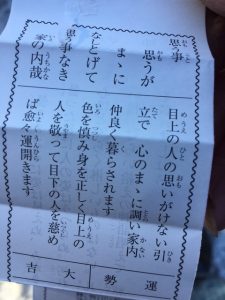 思う事
思うが
まゝに
なとげて
思事なき
家の内哉
目上の人の思いがけない引
立で 心のまゝに調い家内
仲良く暮らされます
色を慎み身を正しく目上の
人を敬って目下の人を慈め
ば愈々運開きます
運勢大吉